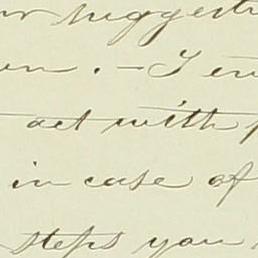 suggesti
. — I en
act with
in case of
steps you